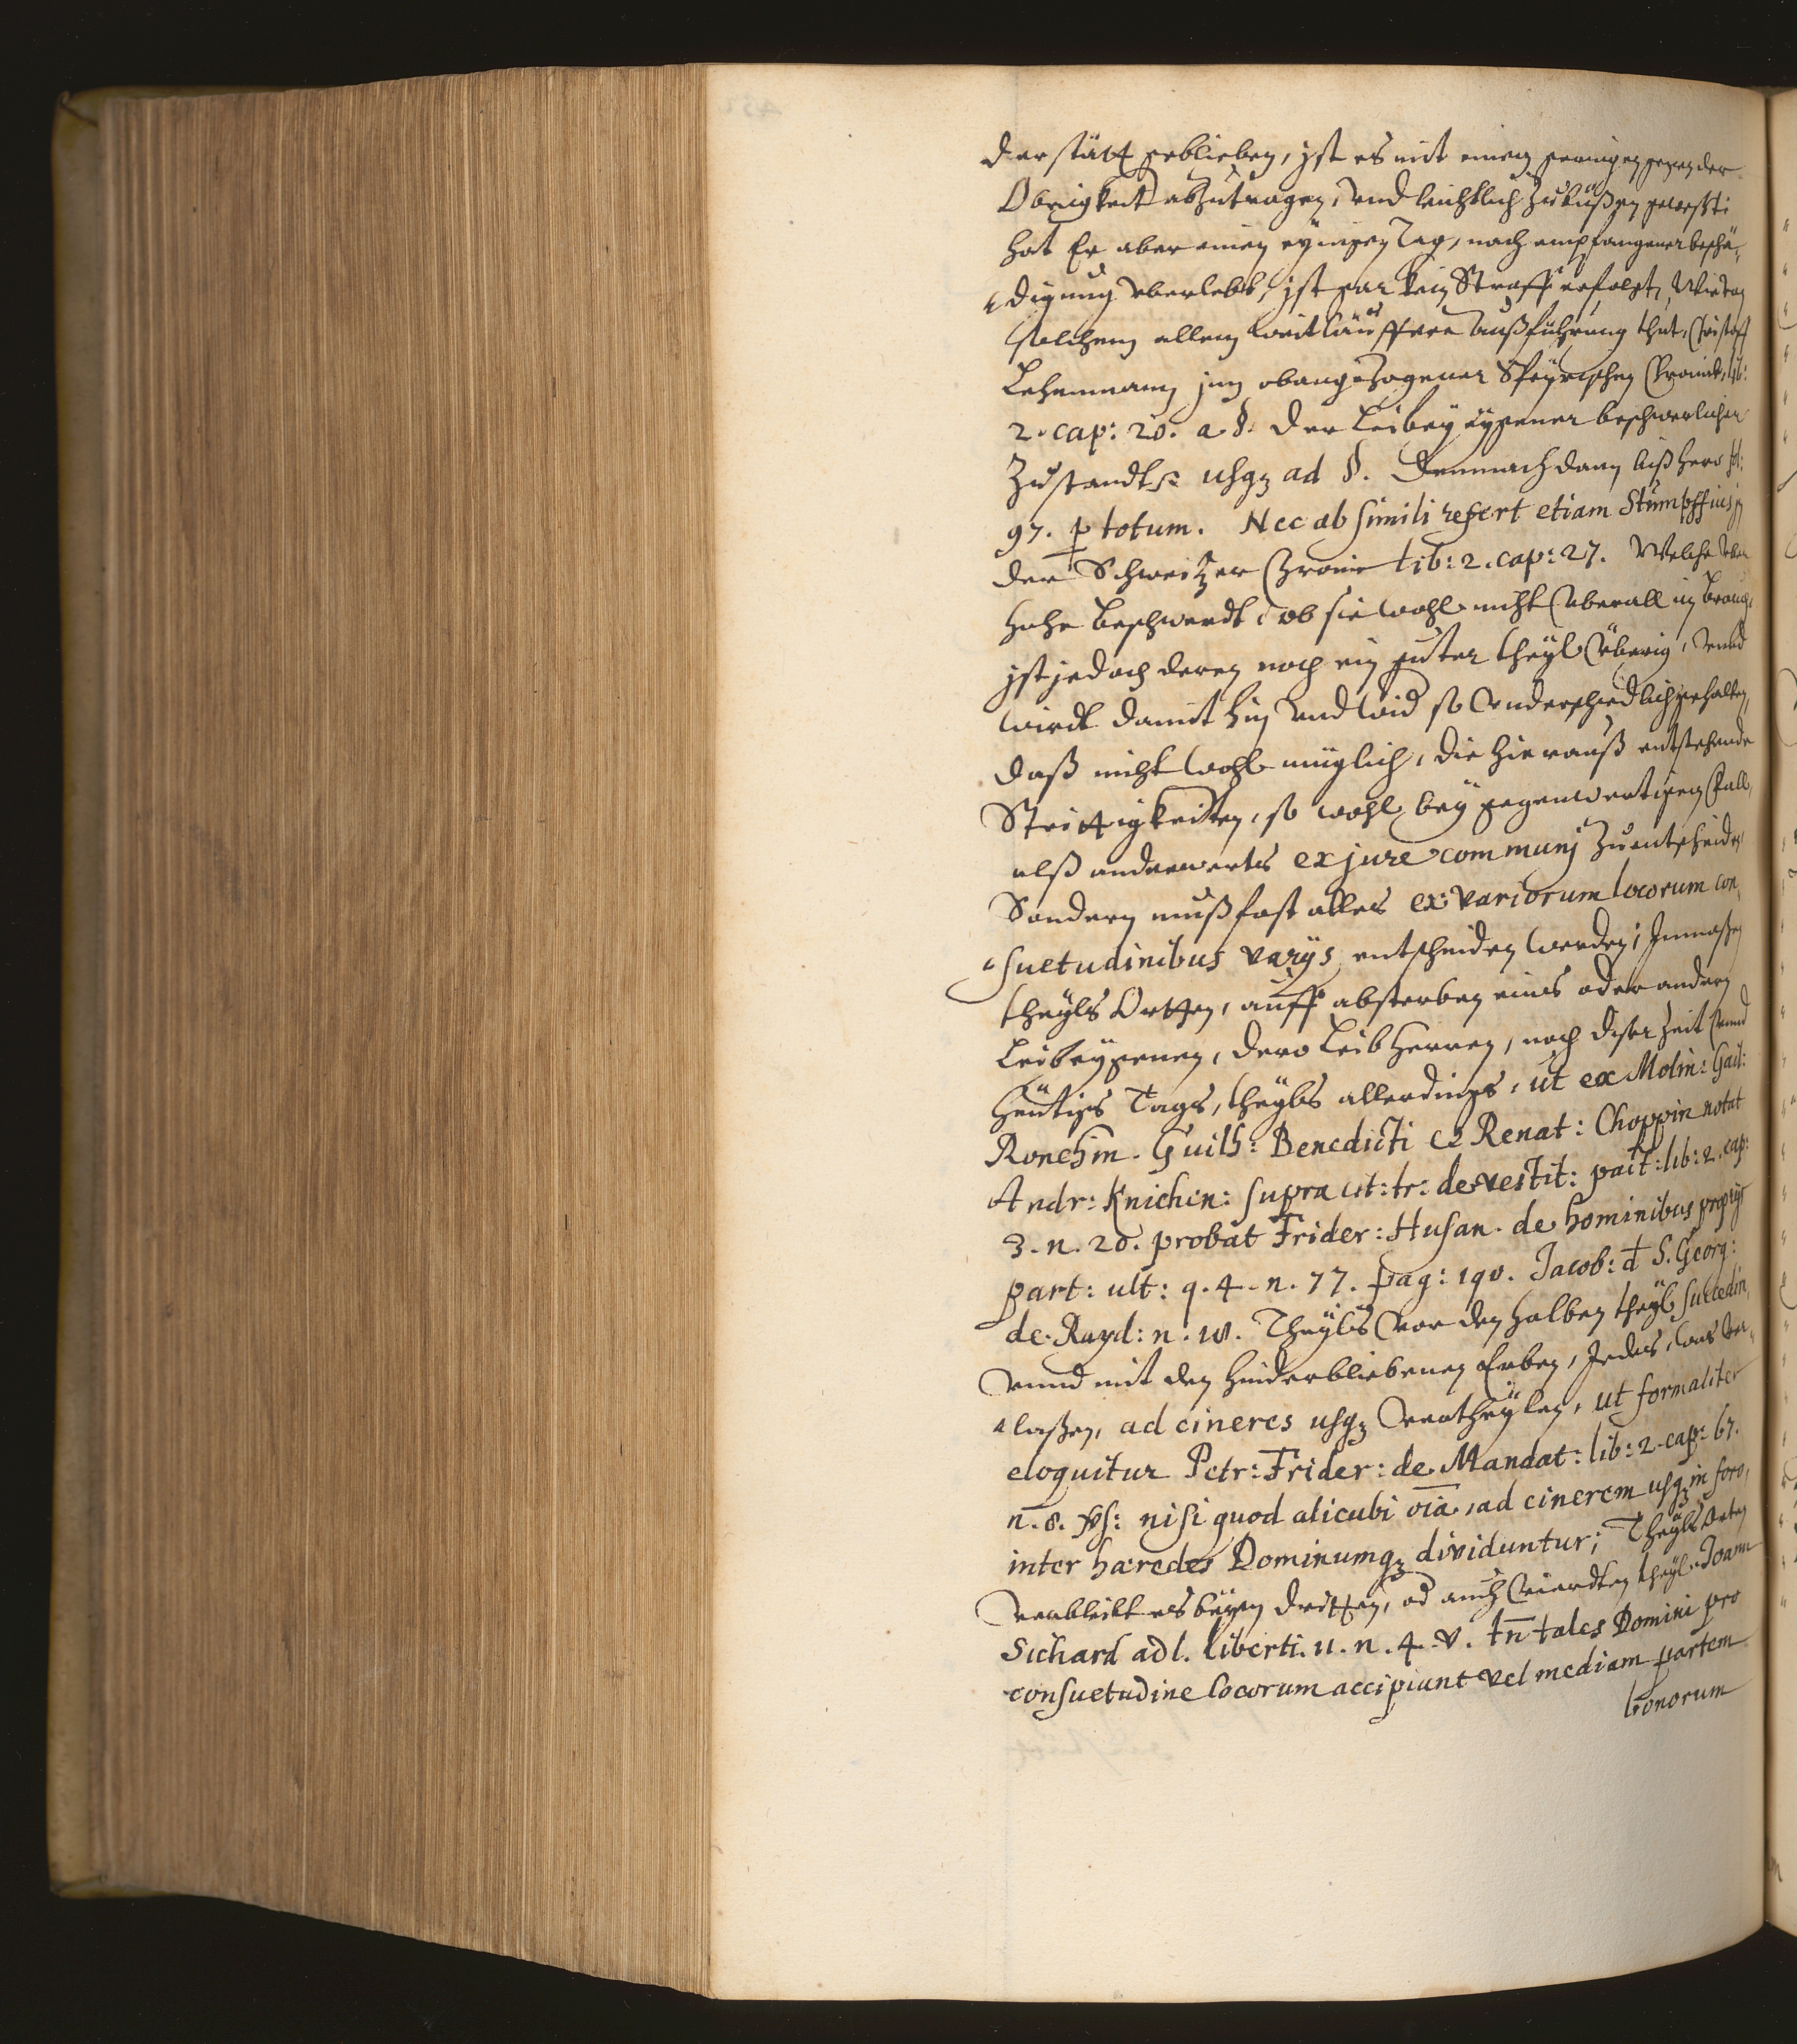 der stätt geblieben, ist es mit einem geringen gegen der
Obrigkeit abzutragen, vnd leichtlich zubüßen gewesst
hat Er aber einen eynigen Tag, nach empfangener beschä-
digung vberlebt, ist gar kein Straff erfolgt, Wie von
solchem allem weitläuffere außführung thut, Christoff
Lehenmann inn obangezogener Speyrischen Cronick, lib:
2. cap: 20. a §. Der Leibeÿ eÿgener beschwerlicher
Zustandt usqz ad §. Demnach dann biß hero fol:
97. p totum. Nec absimili refert etiam Stumpffius jn
der Schweitzer Cronic lib: 2. cap: 27. Welche vber
hohe beschwerdt, ob sie wohl nicht vberall in brauch,
ist jedoch deren noch ein guter theyl vberig, vnnd
wirdt damit hin vnd wid so vnderschiedlich gehalten,
daß nicht wohl müglich, die hierauß entstehende
Strittigkeiten, so wohl beÿ gegenwertigen fall,
alß anderwerts ex jure communj zuentscheiden,
Sondern muß fast alles ex variorum locorum con-
suetudinibus varijs entscheiden werden; Inmaßen
theyls Orthen, auff absterben eines oder andern
Leibeÿgenen, dero Leibherren, noch diser Zeit vnnd
heütigs Tags, theyls allerdings, ut ex Molin: Gail:
Ronchin. Guilh: Benedicti & Renat: Choppin notat
Andr: Knichen: supra cit: tr: de vestit: pact: lib: 2. cap:
3. n. 20. probat Frider: Husan. de hominibus proprijs
part: ult: q. 4. n. 77. pag: 190. Jacob: d S. Georg:
de Rayd: n. 10. Theyls vor den halben theyl succedirn,
vnnd mit den hinderbliebenen Erben, Jedes, was ver-
laßen, ad cineres usqz vertheÿlen, ut formaliter
eloquitur Petr: Frider: de Mandat: lib: 2. cap: 67.
n. 8. vs: nisi quod alicubi oīa, ad cinerem usqz in foro,
inter hæredes Dominumqz dividuntur; Theyls Orten
verbleibt es beÿm dritten, od auch vierdten theyl. Joann
Sichard ad l. liberti. 11. n. 4. v. tn̄ tales Domini pro
consuetudine locorum accipiunt vel mediam partem
bonorum